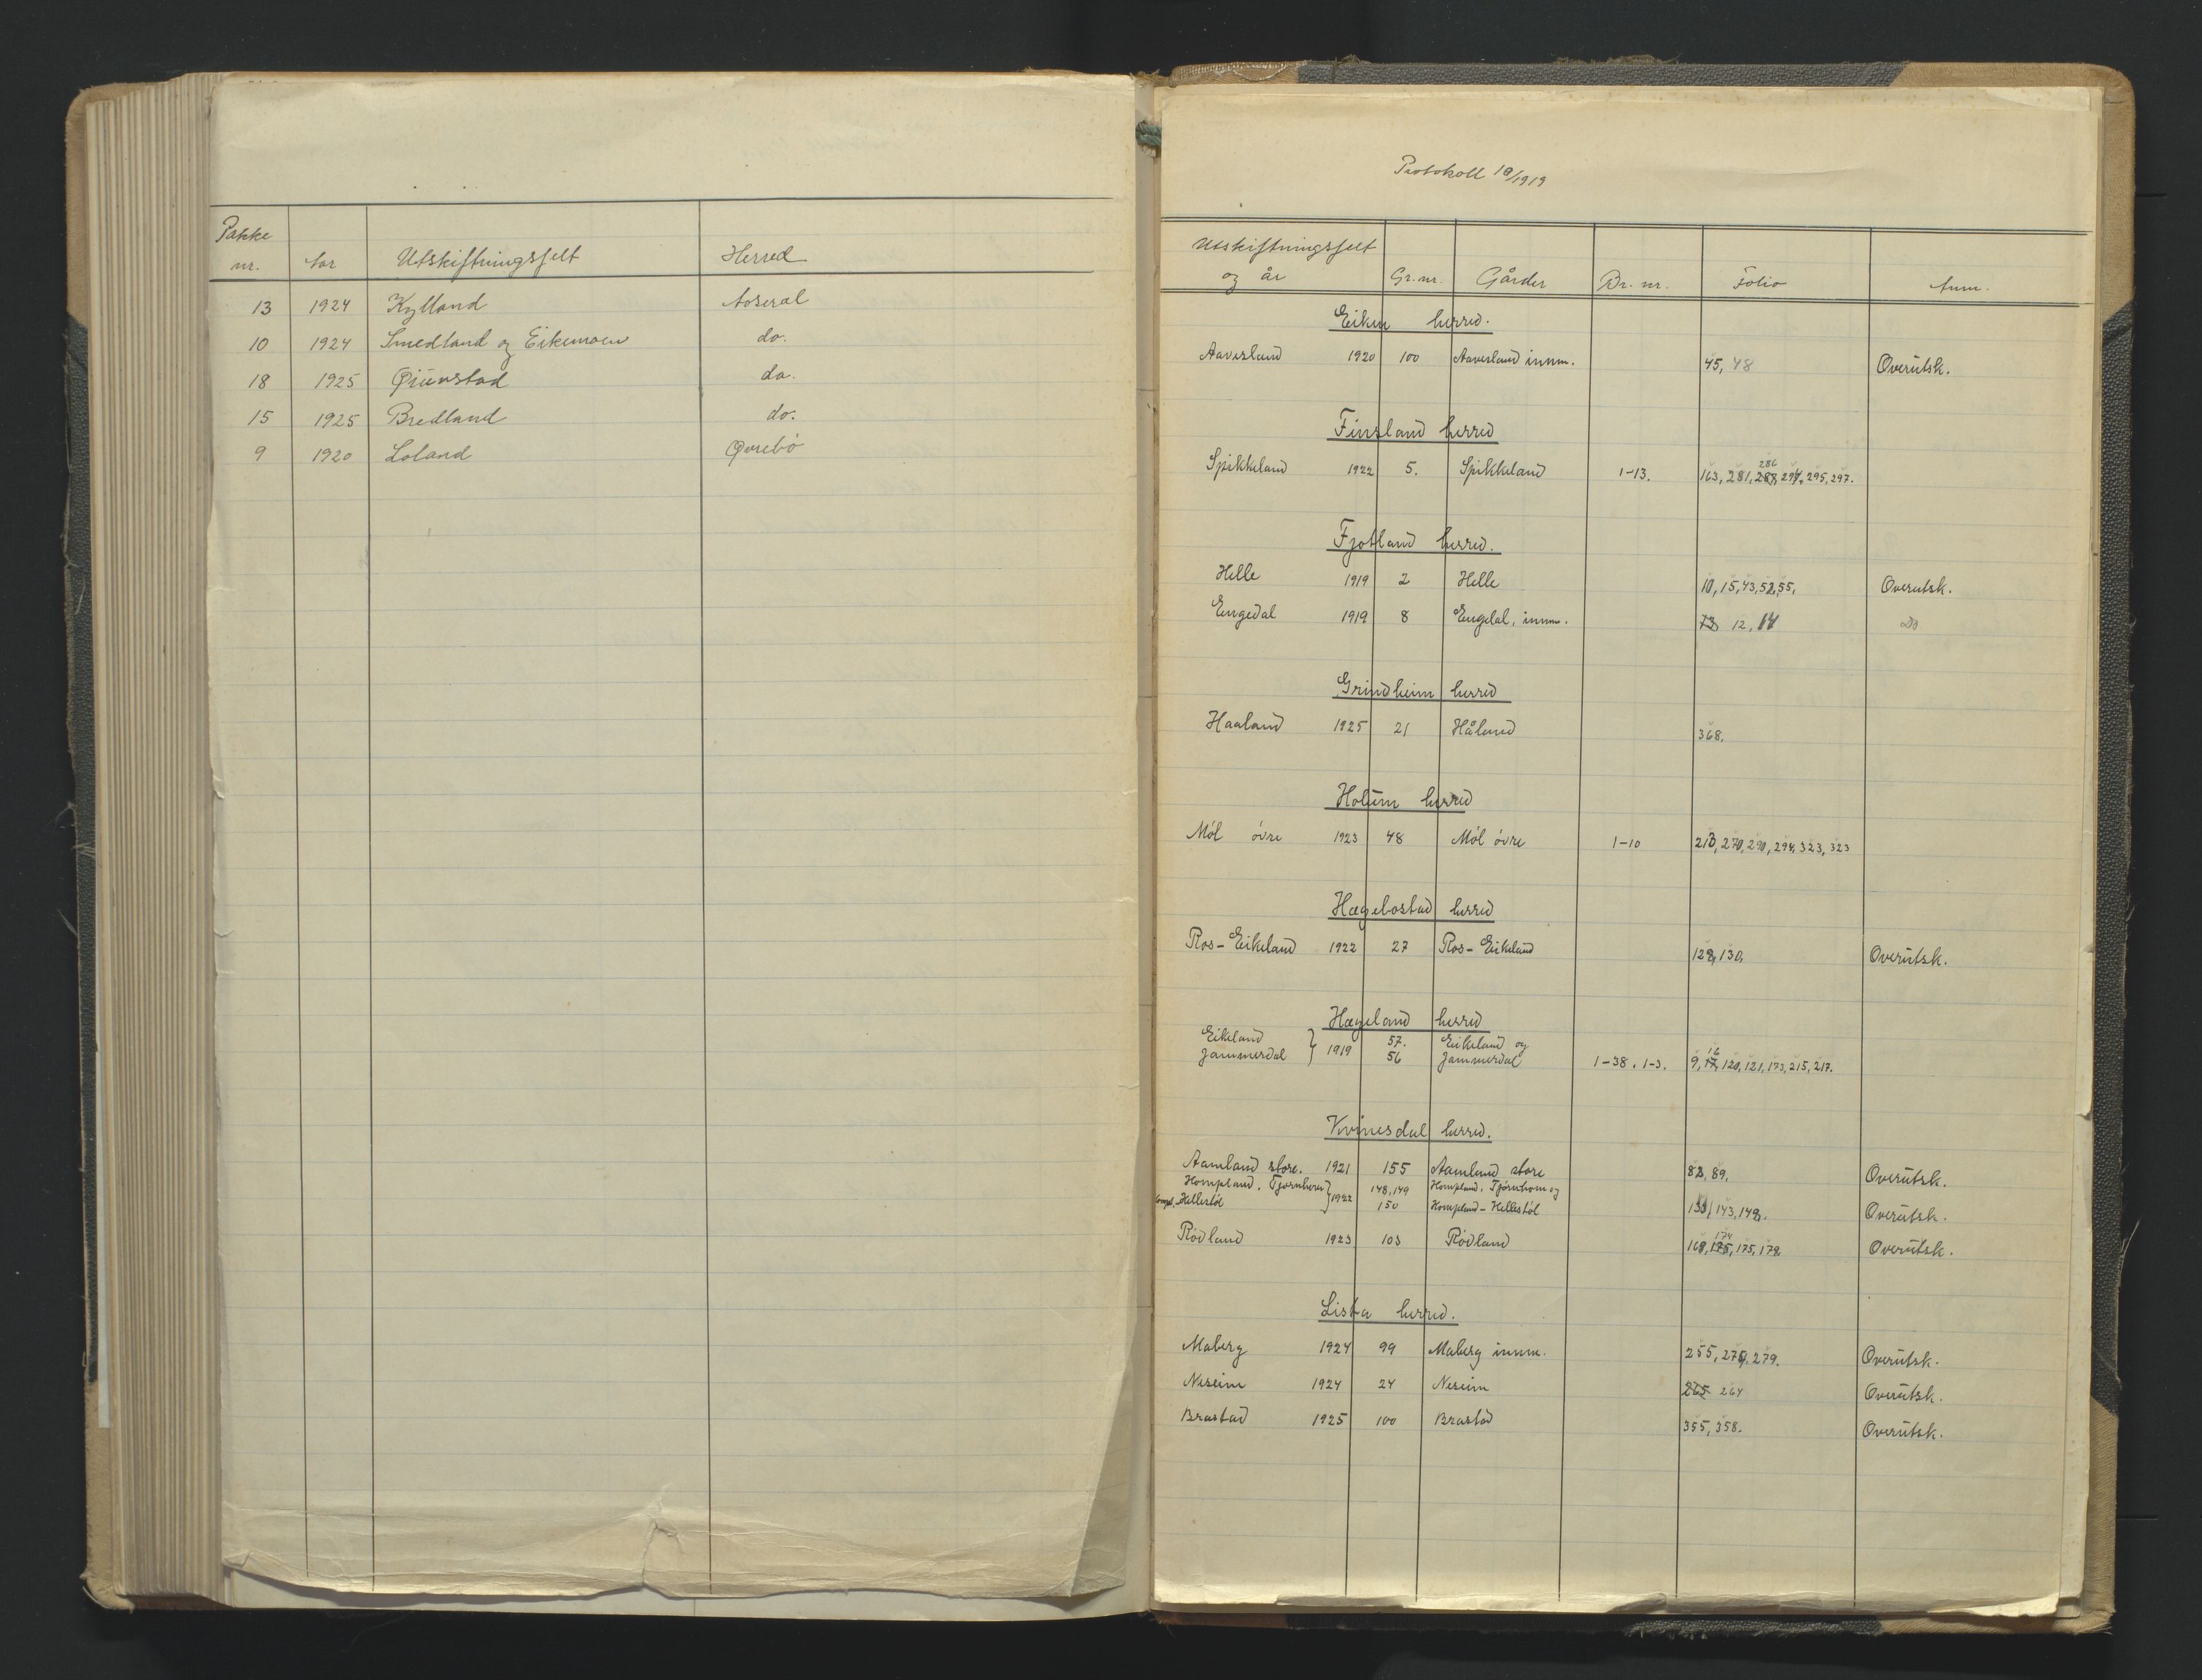 Pakke
nr. Aar Utskiftningsfelt Herred
13 1924 Kylland Aaseral
10 1924 Smedland og Eikemoen do.
18 1925 do.
15 1925 Bredland do.
9 1920 Loland Øvrebö
Protokoll 10/1919
Utskiftningsfelt
og år Gr. nr. Gårder Br. nr. Folio Anm.
Eiken herred.
Aavesland 1920 100 Aavesland innm. 45, 48 Overutsk.
Finsland herred
286
Spikkeland 1922 5. Spikkeland 1-13. 163, 281, 295, 297.
Fjotland herred.
Helle 1919 2 Helle 10, 15, 43, 52, 55, Overutsk.
Engedal 1919 8 Engdal, innm. 13 12, 14 Do
Grindheim herred
Haaland 1925 21 Håland 368.
Holum herred
Möl övre 1923 48 Möl övre 1-10 213, 270, 290, 294, 323, 323
Hægebostad herred
Ros-Eikeland 1922 27 Ros-Eikeland 129, 130, Overutsk.
Hægeland herred
Eikeland 57. Eikeland og
Jammerdal } 1919 56 Jammerdal 1-38, 1-3. 9, 17, 16 120, 121, 173, 215, 217.
Kvinesdal herred.
Aamland store. 1921 155 Aamland store 82, 89, Overutsk.
Hompland, Tjørnhom } 1922 148, 149 Hompland, Tjörnhom og
Hompl.-Hellestöl 150 Hompland-Hellestöl 143, 149. Overutsk.
174
Rödland 1923 103 Rödland 168, 175, 175, 179 Overutsk.
Lista herred.
Maberg 1924 99 Maberg innm. 255, 279. Overutsk.
Neseim 1924 24 Neseim 265 264 Overutsk.
Brastad 1925 100 Brastad 355, 358. Overutsk.